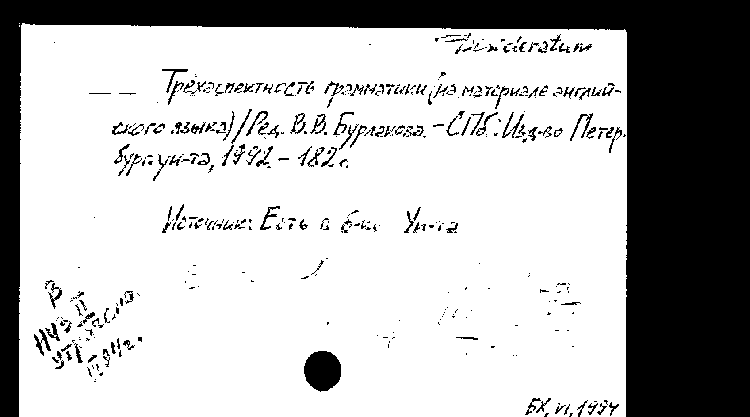 Desideratum
— — Трехаспектность грамматики (на материале англий-
ского языка) / Ред. В.В. Бурлакова. – СПб.: Изд-во Петер-
бург. ун-та, 1992. – 182 с.
Источник: Есть в б-ке Ун-та
В
III 94 г.
БХ, VI, 1994